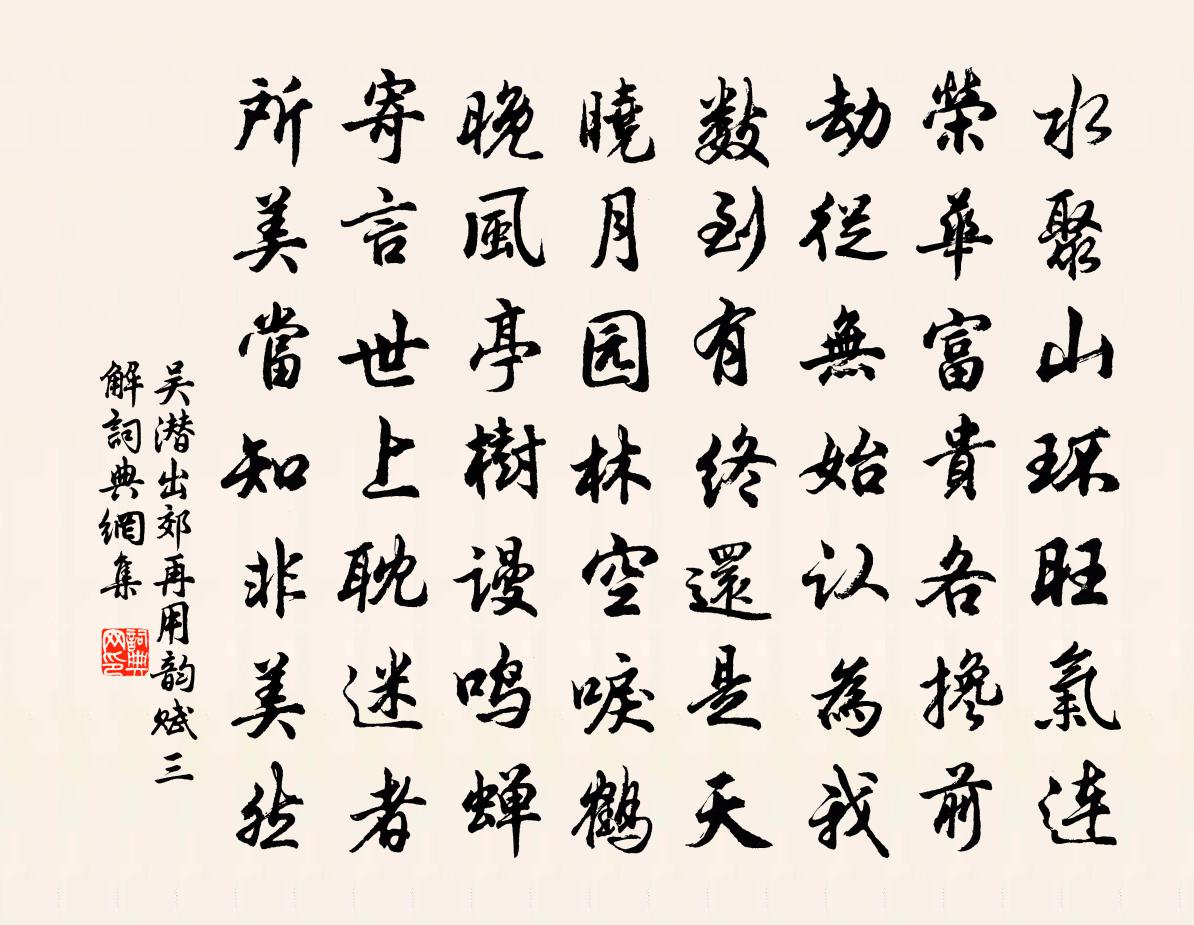 水聚山环旺氣連
榮華富貴各攙前
劫從無始认為我
數到有终還是天
曉月园林空唳鶴
晚風亭樹谩鸣蝉
寄言世上耽迷者
所美當知非美然
吴潜出郊再用韵赋三
解詞典網集
詞典网印